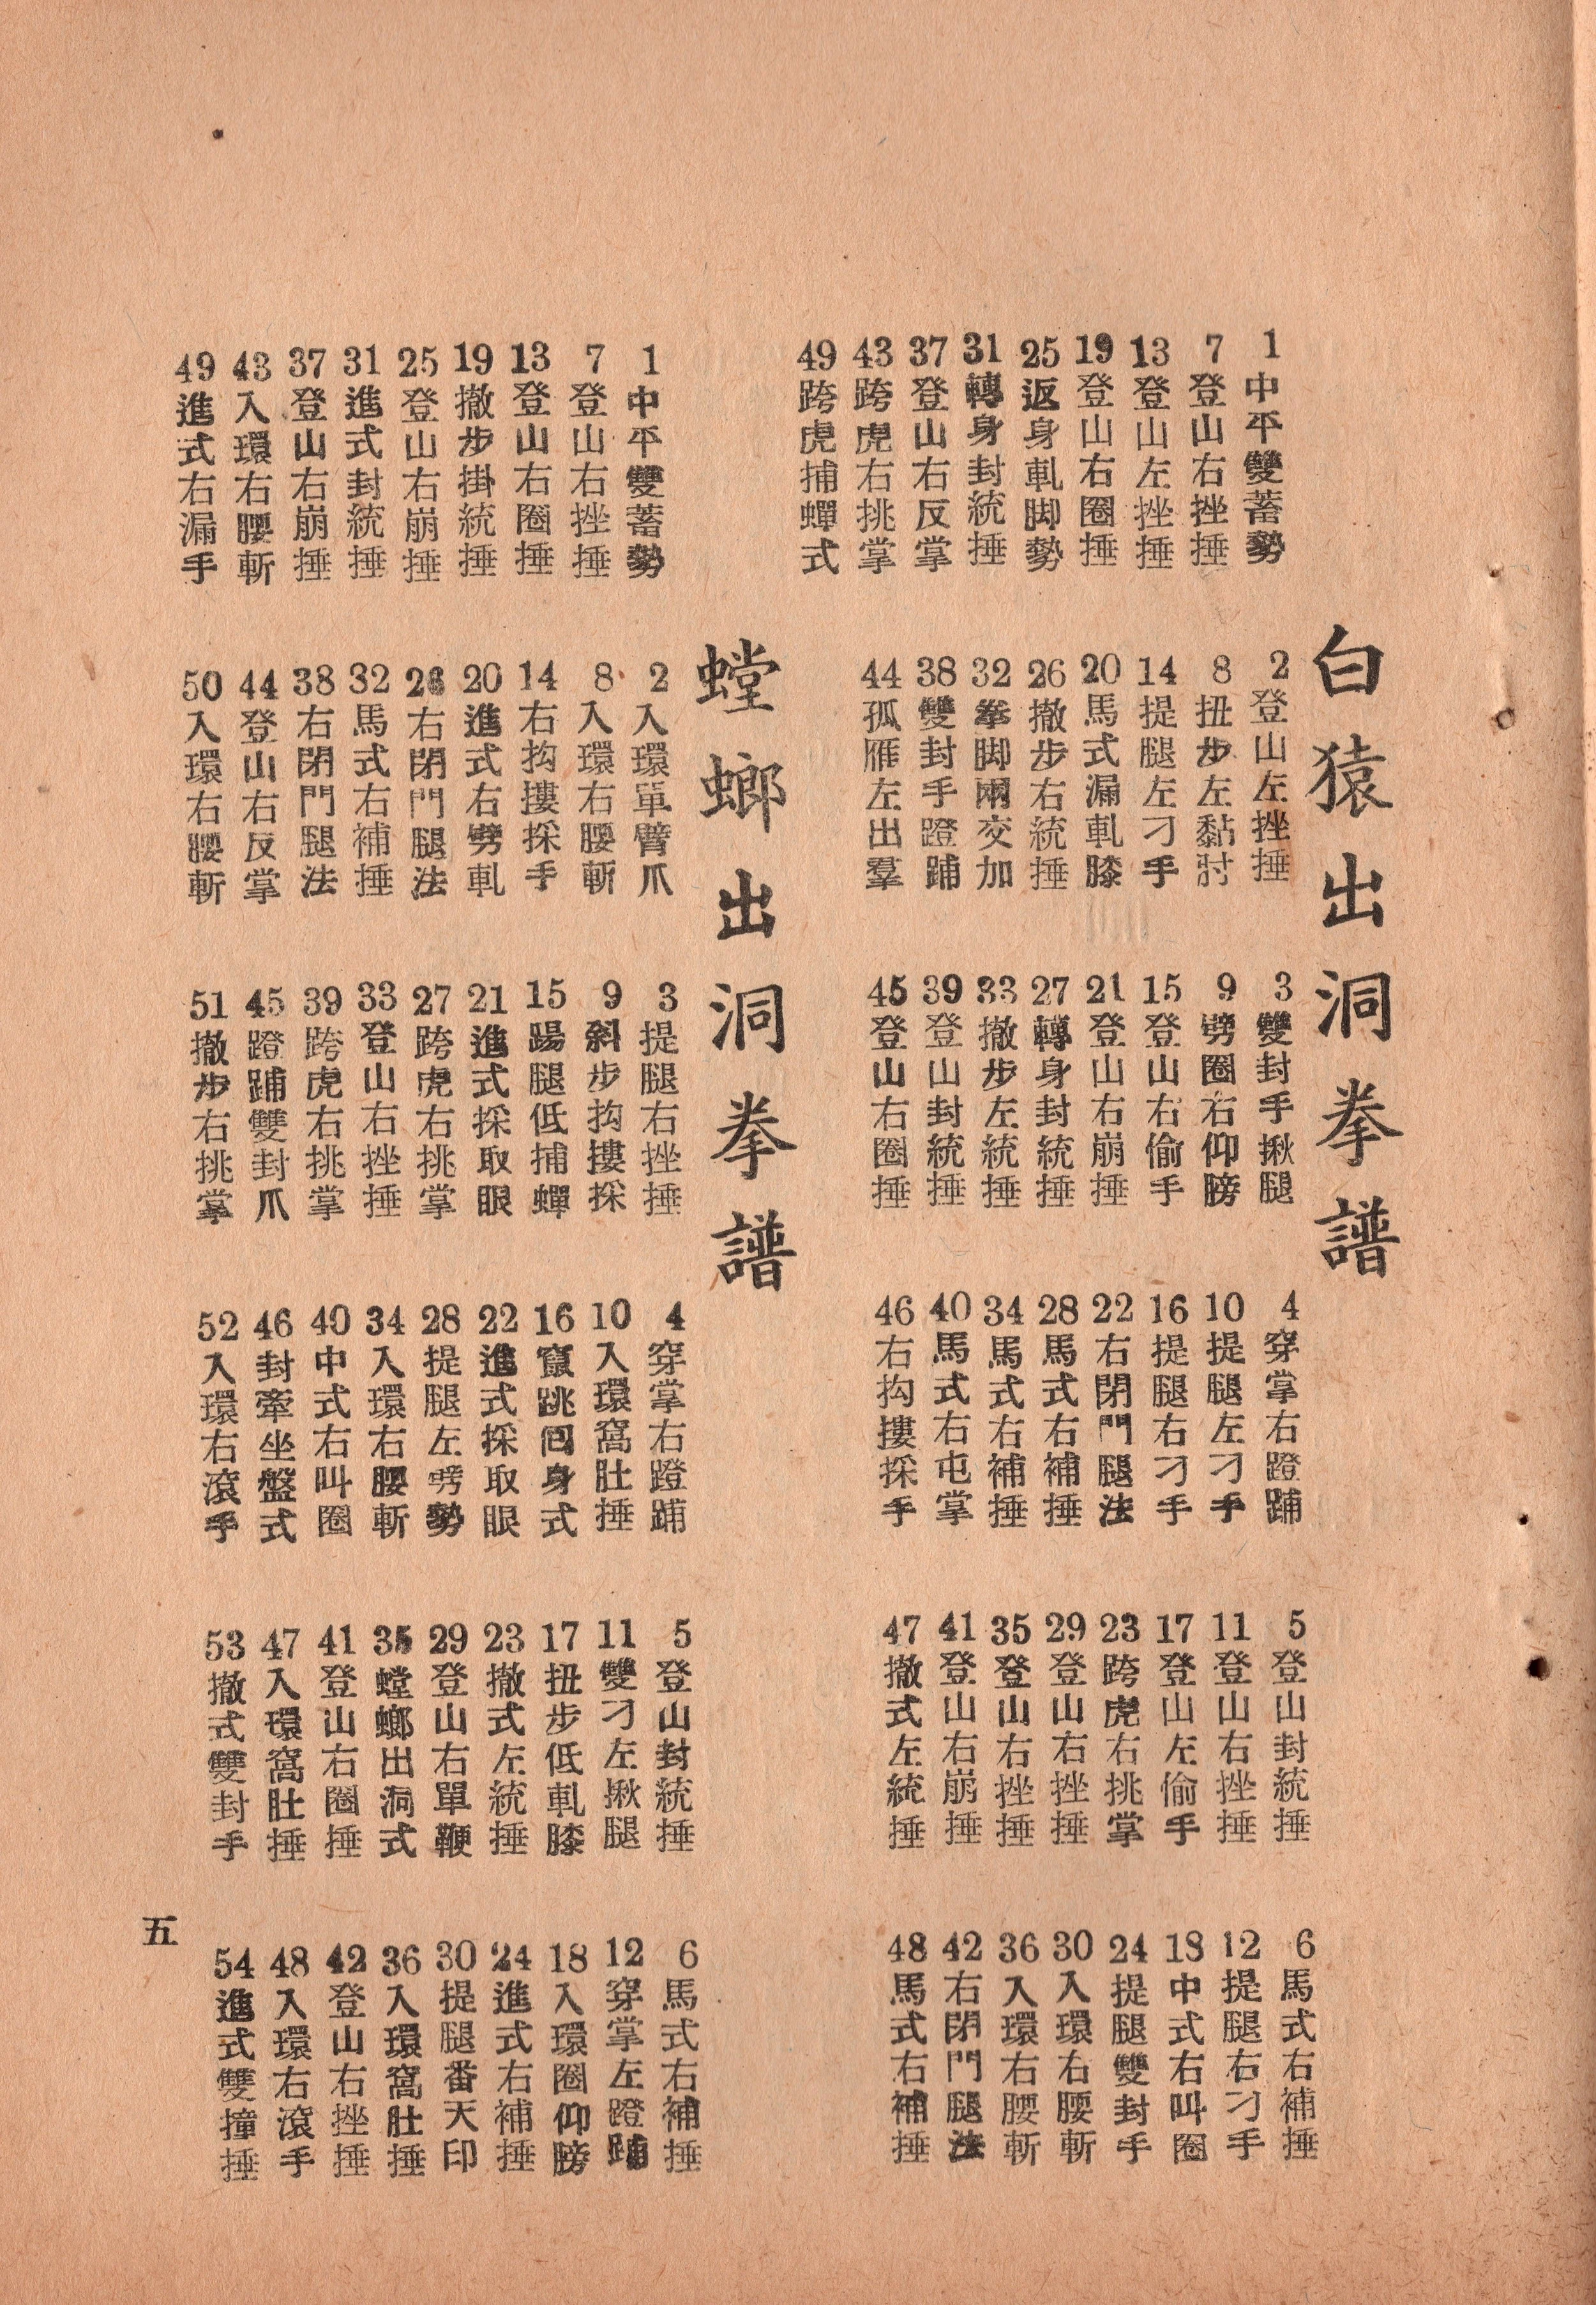 白猿出洞拳譜
1 中平雙蓄勢
2 登山左挫捶
3 雙封手揪腿
4 穿掌右蹬踊
5 登山封統捶
6 馬式右補捶
7 登山右挫捶
8 扭步左黏肘
9 劈圈右仰膀
10 提腿左刁手
11 登山右挫捶
12 提腿右刁手
13 登山左挫捶
14 提腿左刁手
15 登山右偷手
16 提腿右刁手
17 登山左偷手
18 中式右叫圈
19 登山右圈捶
20 馬式漏軋膝
21 登山右崩捶
22 右閉門腿法
23 跨虎右挑掌
24 提腿雙封手
25 返身軋脚勢
26 撤步右統捶
27 轉身封統捶
28 馬式右補捶
29 登山右挫捶
30 入環右腰斬
31 轉身封統捶
32 拳脚兩交加
33 撤步左統捶
34 馬式右補捶
35 登山右挫捶
36 入環右腰斬
37 登山右反掌
38 雙封手蹬踊
39 登山封統捶
40 馬式右屯掌
41 登山右崩捶
42 右閉門腿法
43 跨虎右挑掌
44 孤雁左出羣
45 登山右圈捶
46 右抅摟採手
47 撤式左統捶
48 馬式右補捶
49 跨虎捕蟬式
螳螂出洞拳譜
1 中平雙蓄勢
2 入環單臂爪
3 提腿右挫捶
4 穿掌右蹬踊
5 登山封統捶
6 馬式右補捶
7 登山右挫捶
8 入環右腰斬
9 斜步抅摟採
10 入環窩肚捶
11 雙刁左揪腿
12 穿掌左蹬踊
13 登山右圈捶
14 右抅摟採手
15 踢腿低捕蟬
16 竄跳囘身式
17 扭步低軋膝
18 入環圈仰膀
19 撤步掛統捶
20 進式右劈軋
21 進式採取眼
22 進式採取眼
23 撤式左統捶
24 進式右補捶
25 登山右崩捶
26 右閉門腿法
27 跨虎右挑掌
28 提腿左劈勢
29 登山右單鞭
30 提腿番天印
31 進式封統捶
32 馬式右補捶
33 登山右挫捶
34 入環右腰斬
35 螳螂出洞式
36 入環窩肚捶
37 登山右崩捶
38 右閉門腿法
39 跨虎右挑掌
40 中式右叫圈
41 登山右圈捶
42 登山右挫捶
43 入環右腰斬
44 登山右反掌
45 蹬踊雙封爪
46 封牽坐盤式
47 入環窩肚捶
48 入環右滾手
49 進式右漏手
50 入環右腰斬
51 撤步右挑掌
52 入環右滾手
53 撤式雙封手
54 進式雙撞捶
五